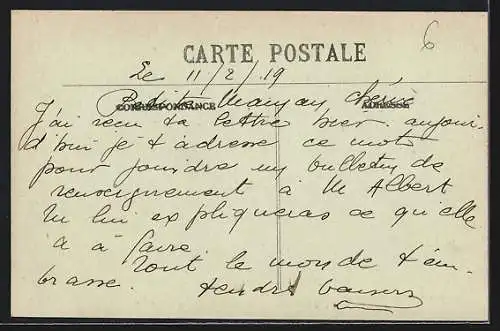 6
CARTE POSTALE
Le 11/2/19
CORRESPONDANCE ADRESSE
Petite Maman chérie
J'ai reçu ta lettre hier aujour-
d'hui je t'adresse ce mot
pour joindre un bulletin de
renseignement à M Albert
Tu lui expliqueras ce qu'elle
a à faire
Tout le monde t'em-
brasse. tendres baisers